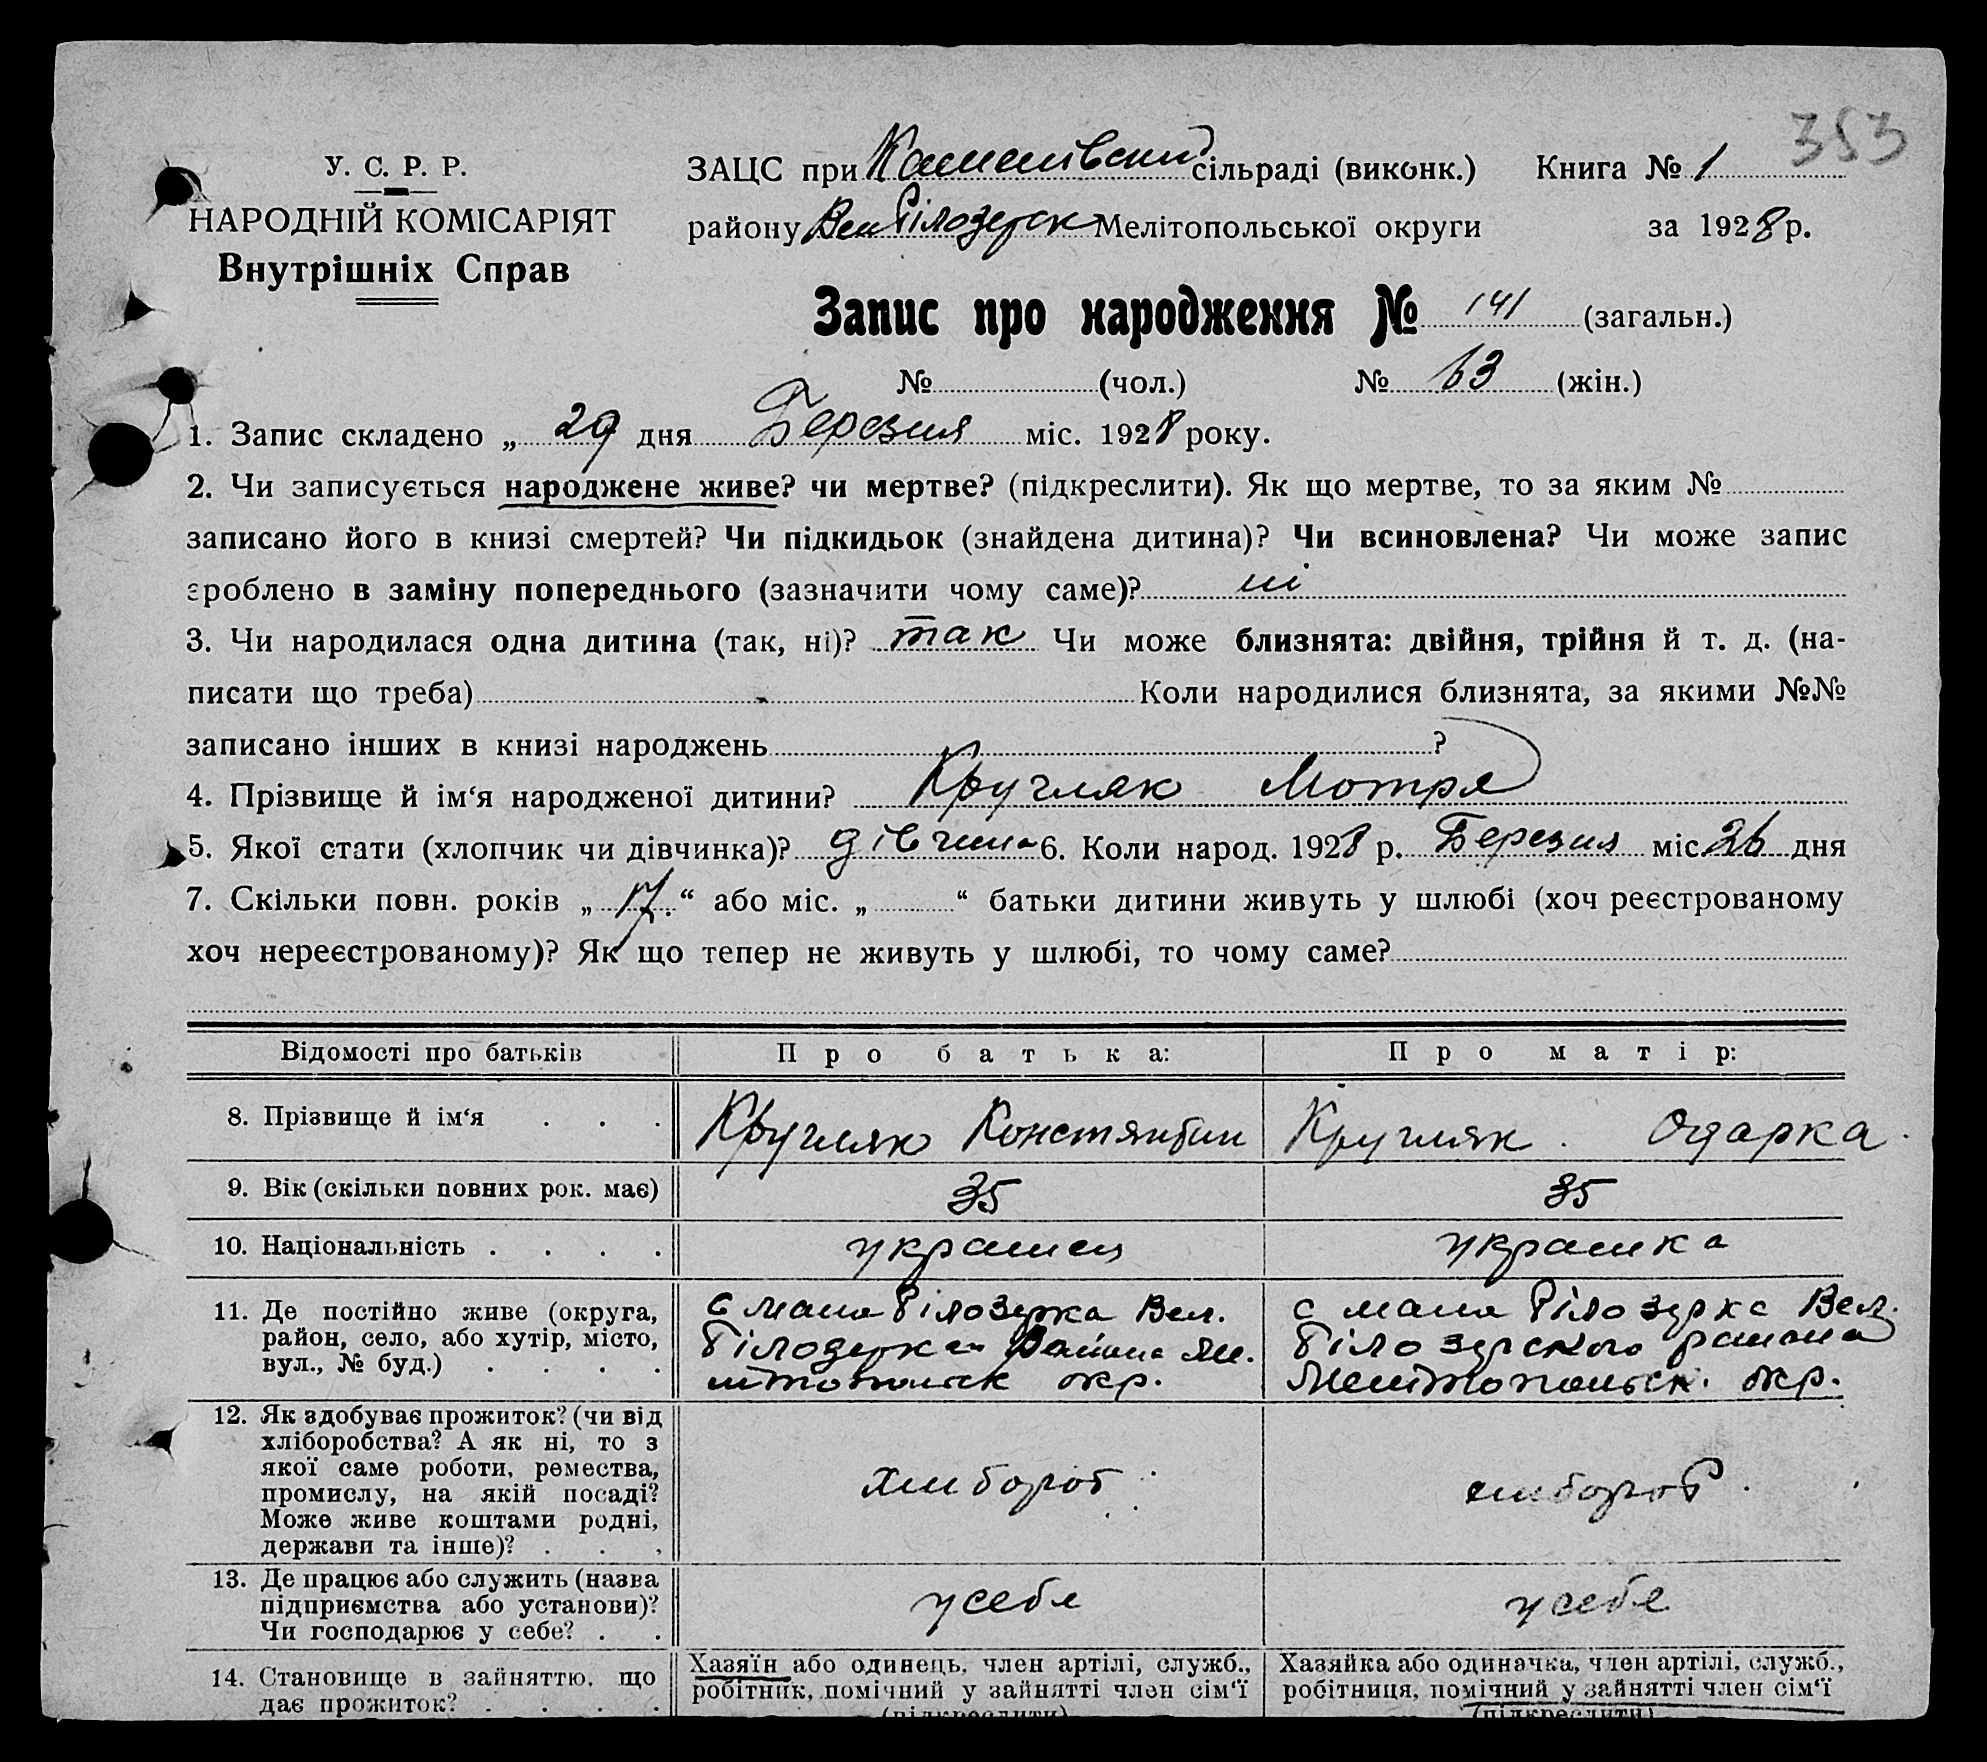 353
У. С. Р. Р.
НАРОДНІЙ КОМІСАРІЯТ
Внутрішніх Справ
ЗАЦС при сільраді (виконк.) Книга № 1
району Вел Білозерск Мелітопольської округи за 1928 р.
Запис про народження № 141 (загальн.)
№ (чол.) № 63 (жін.)
1. Запис складено „ 29 дня Березня міс. 1928 року.
2. Чи записується народжене живе? чи мертве? (підкреслити). Як що мертве, то за яким №
записано його в книзі смертей? Чи підкидьок (знайдена дитина)? Чи всиновлена? Чи може запис
зроблено в заміну попереднього (зазначити чому саме)? ні
3. Чи народилася одна дитина (так, ні)? так Чи може близнята: двійня, трійня й т. д. (на-
писати що треба) Коли народилися близнята, за якими №№
записано інших в книзі народжень ?
4. Прізвище й ім‘я народженої дитини? Кругляк Мотря
5. Якої стати (хлопчик чи дівчинка)? дівчина 6. Коли народ. 1928 р. Березня міс. 26 дня
7. Скільки повн. років „ 17. “ або міс. „ “ батьки дитини живуть у шлюбі (хоч реєстрованому
хоч нереєстрованому)? Як що тепер не живуть у шлюбі, то чому саме?
Відомості про батьків Про батька: Про матір:
8. Прізвище й ім‘я Кругляк Констянтин Кругляк. Одарка.
9. Вік (скільки повних рок. має) 35 35
10. Національність украинец украинка
11. Де постійно живе (округа, район, село, або хутір, місто, вул., № буд.)
с мала Білозерка Вел.
Білозерск Района Ме.
литопольск окр.
с мала Білозерка Вел.
Білозерского района
Мелитопольск. окр.
12. Як здобуває прожиток? (чи від
хліборобства? А як ні, то з
якої саме роботи, ремества,
промислу, на якій посаді?
Може живе коштами родні,
держави та інше)?
хлибороб хлибороб
13. Де працює або служить (назва
підприємства або установи)?
Чи господарює у себе?
у себе у себе
14. Становище в зайняттю, що
дає прожиток?
Хазяїн або одинець, член артілі, служб.,
робітник, помічний у зайнятті член сім‘ї
(підкреслити)
Хазяйка або одиначка, член артілі, служб.,
робітниця, помічний у зайнятті член сім‘ї
(підкреслити)